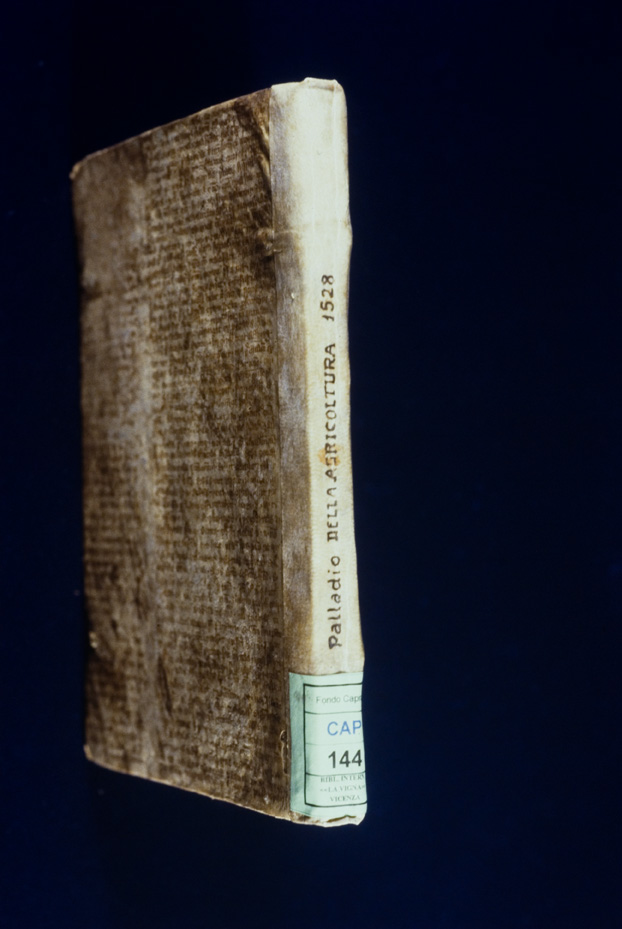 Palladio DELLA AGRICOLTURA 1528
Fondo Capr
CAP
144
BIBL. INTERN
«LA VIGNA»
VICENZA